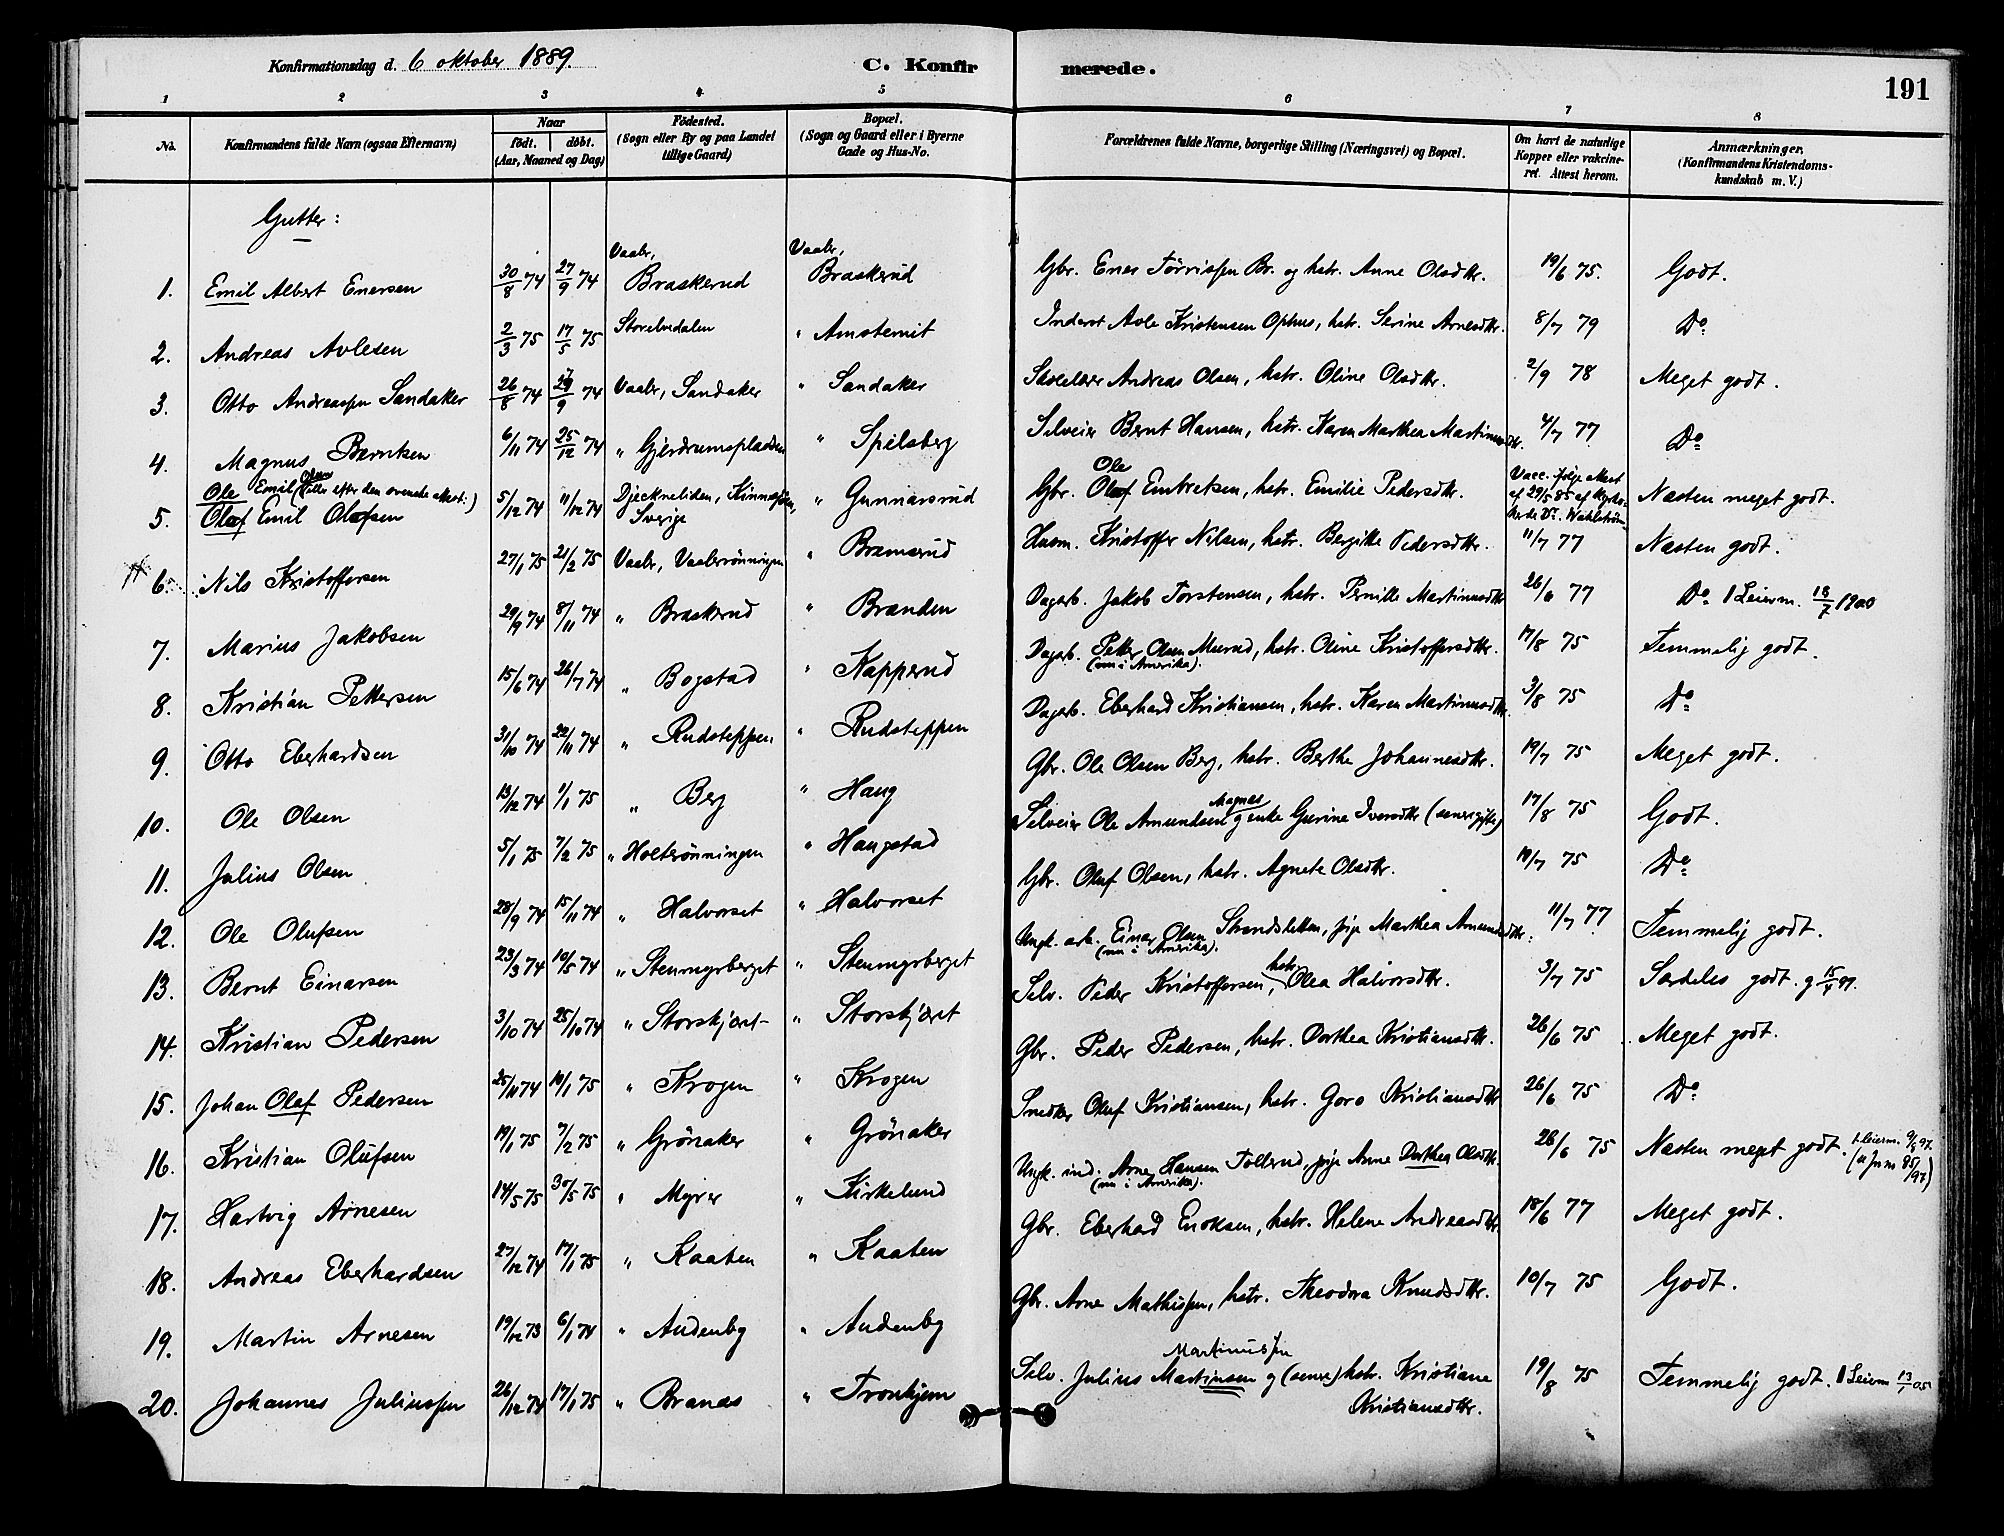 Konfirmationsdag d. 6 oktober 1889.
C. Konfirmerede.
191
1 2 3 4 5 6 7 8
No. Konfirmandens fulde Navn (ogsaa Efternavn) Naar født. døbt. (Aar, Maaned og Dag) Fødested. (Sogn eller By og paa Landet tillige Gaard) Bopæl. (Sogn og Gaard eller i Byerne Gade og Hus-No. Forældrenes fulde Navne, borgerlige Stilling (Næringsvei) og Bopæl. Om havt de naturlige Kopper eller vakcineret. Attest herom. Anmærkninger. (Konfirmandens Kristendomskundskab m. V.)
Gutter:
1. Emil Albert Enersen 30/8 74 27/9 74 Vaaler, Braskerud Vaaler, Braskerud Gbr. Ener Törrissen Br. og hstr. Anne Olsdtr. 19/6 75. Godt.
2. Andreas Avlesen 2/3 75 17/5 75 Storelvdalen " Amstemit Inderst Avle Kristensen Ophus, hstr. Serine Arnesdtr. 8/7 79 Do
3. Otto Andreassen Sandaker 26/8 74 /9 74 Vaaler, Sandaker " Sandaker Skolelærer Andreas Olsen, hstr. Oline Olsdtr. 2/9 78 Meget godt.
4. Magnus Berntsen 6/11 74 25/12 74 " Gjerdrumspladsen " Spilsberg Selveier Bernt Hansen, hstr. Karen Marthea Martinusdtr. 4/7 77 Do
5. Ole Emil Olsen (eller efter den svenske attest:) Olof Emil Olofsen 5/12 74 11/12 74 Djeckneliden, Sverige " Gunnarsrud Gbr. Ole Olof Embretsen, hstr. Emilie Pedersdtr. Vacc. følge Attest af 29/5 85 af Dr. Wahlström Næsten meget godt.
6. Nils Kristoffersen 27/1 75 21/2 75 Vaaler, Vaalerrønningen " Bramsrud Husm. Kristoffer Nilsen, hstr. Bergitte Pedersdtr. 11/7 77 Næsten godt.
7. Marius Jakobsen 29/9 74 8/11 74 " Braskerud " Branden Dagarb. Jakob Torstensen, hstr. Pernille Martinusdtr 26/6 77 Do 1 Leierm. 18/7 1900
8. Kristian Pettersen 15/6 74 26/7 74 " Bogstad " Kapperud Dagarb. Petter Olsen Murud, hstr. Oline Kristoffersdtr. (nu i Amerika). 17/8 75 Temmelig godt.
9. Otto Eberhardsen 31/10 74 22/11 74 " Rudsteppen " Rudsteppen Dagarb. Eberhard Kristiansen, hstr. Karen Martinusdtr. 3/8 75 Do
10. Ole Olsen 13/12 74 1/1 75 " Berg " Haug Gbr. Ole Olsen Berg, hstr. Berthe Johannesdtr. 19/7 75 Meget godt.
11. Julius Olsen 5/1 75 7/2 75 " Holtrønningen " Haugstad Selveier Ole Amundsen Magnæs og enke Gurine Iversdtr (senere gift) 17/8 75 Godt.
12. Ole Olufsen 28/9 74 15/11 74 " Halvorset " Halvorset Gbr. Oluf Olsen, hstr. Agnete Olsdtr. 19/7 75 Do
13. Bernt Einarsen 23/3 74 10/5 74 " Stenmyrberget " Stenmyrberget Ungk. arb. Einar Olsen Strandsletten, pige Marthea Amundsdtr. (nu i Amerika). 11/7 77 Temmelig godt.
14. Kristian Pedersen 3/10 74 25/10 74 " Storskjæret " Storskjæret Selv. Peder Kristoffersen, hstr. Olea Halvorsdtr. 3/7 75 Særdeles godt. g 15/4 97.
15. Johan Olaf Pedersen 25/11 74 10/1 75 " Krogen " Krogen Gbr. Peder Pedersen, hstr. Dorthea Kristiansdtr. 26/6 75 Meget godt.
16. Kristian Olufsen 19/1 75 7/2 75 " Grönaker " Grönaker Snedker Oluf Kristiansen, hstr. Goro Kristiansdtr 26/6 75 Do
17. Hartvig Arnesen 14/5 75 30/5 75 " Myrer " Kirkelund Ungk. ind. Arne Hansen Tollerud, pige Anne Dorthea Olsdtr. (nu i Amerika). 26/6 75 Næsten meget godt.
18. Andreas Eberhardsen 27/12 74 17/1 75 " Kaaten " Kaaten Gbr. Eberhard Enoksen, hstr. Helene Andreasdtr 18/6 77 Meget godt.
19. Martin Arnesen 19/12 73 6/1 74 " Audenby " Audenby Gbr. Arne Mathissen, hstr. Theodora Knudsdtr. 10/7 75 Godt.
20. Johannes Juliussen 26/12 74 17/1 75 " Branæs " Tronkjern Selv. Julius Martinsen Martinussen og (senere) hstr. Kristiane Kristiansdtr. 19/8 75 Temmelig godt. 1 Leierm 13/1 05